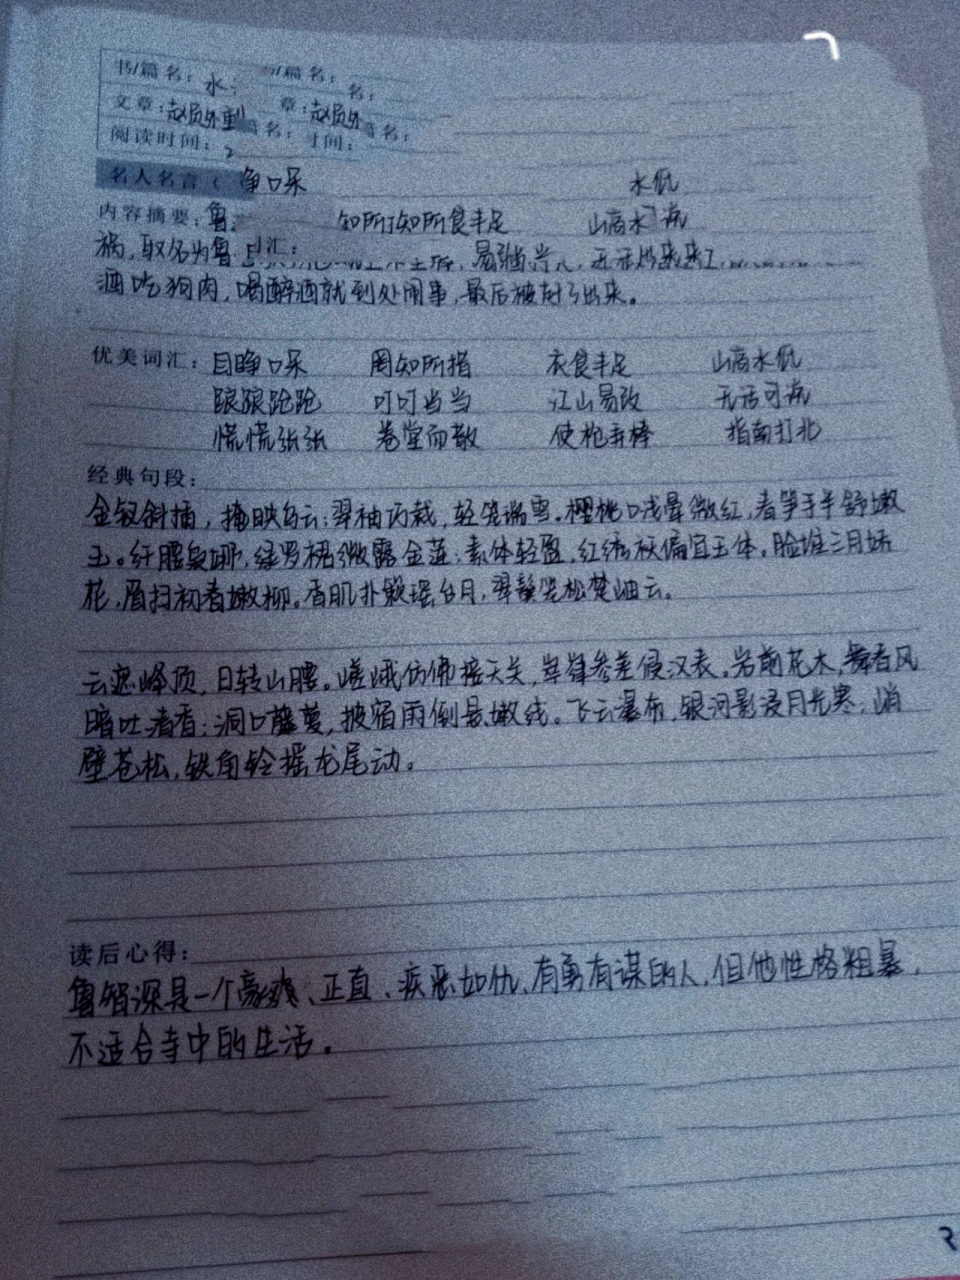 书/篇名: 水 篇名: 名:
文章:赵员外重 章:赵员外 篇名:
阅读时间: 名: 时间:
名人名言 睁口呆 水低
内容摘要:鲁 知所 知所食丰足 山高水
祸,取名为鲁 词汇:
酒吃狗肉,喝醉酒就到处闹事,最后被 了出来。
优美词汇: 目睁口呆 周知所措 衣食丰足 山高水低
踉踉跄跄 叮叮当当 江山易改 无话可说
慌慌张张 卷堂而散 使枪弄棒 指南打北
经典句段:
金钗斜插,掩映乌云;翠袖巧裁,轻笼瑞雪。樱桃口浅晕微红,春笋手半舒嫩
玉。纤腰袅娜,绿罗裙微露金莲;素体轻盈,红绣袄偏宜玉体。脸堆三月娇
花,眉扫初春嫩柳。香肌扑簌瑶台月,翠鬓笼松楚岫云。
云遮峰顶,日转山腰。嵯峨仿佛接天关,崒嵂参差侵汉表。岩前花木,舞春风
暗吐清香;洞口藤萝,披宿雨倒悬嫩线。飞云瀑布,银河影浸月光寒;峭
壁苍松,铁角铃摇龙尾动。
读后心得:
鲁智深是一个豪爽、正直、疾恶如仇,有勇有谋的人,但他性格粗暴,
不适合寺中的生活。